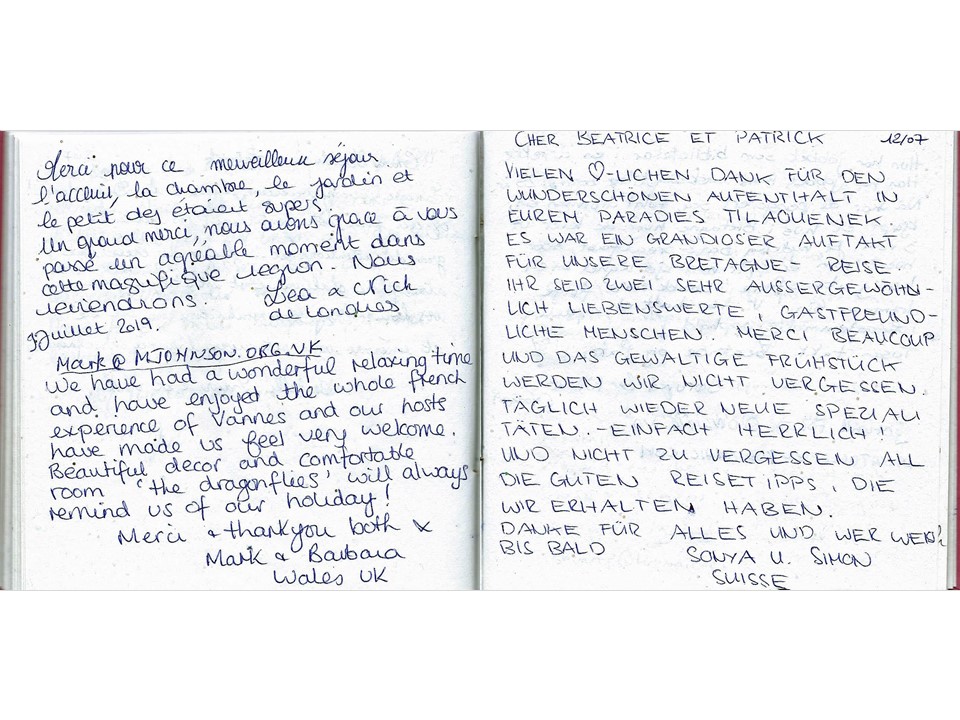 Merci pour ce merveilleux séjour
l'acceuil, la chambre, le jardin et
le petit dej étaient supers.
Un grand merci, nous avons grace à vous
passé un agréable moment dans
cette magnifique region. Nous
reviendrons. Lea & Nick
de Longues
Juillet 2019.
Mark@MJOHNSON.ORG.UK
We have had a wonderful relaxing time
and have enjoyed the whole french
experience of Vannes and our hosts
have made us feel very welcome.
Beautiful decor and comfortable
room 'the dragonflies' will always
remind us of our holiday!
Merci & thankyou both x
Mark & Barbara
Wales UK
CHER BEATRICE ET PATRICK 12/07
VIELEN ♡-LICHEN DANK FÜR DEN
WUNDERSCHÖNEN AUFENTHALT IN
EUREM PARADIES TILAOUENEK.
ES WAR EIN GRANDIOSER AUFTAKT
FÜR UNSERE BRETAGNE-REISE.
IHR SEID ZWEI SEHR AUSSERGEWÖHN-
LICH LIEBENSWERTE, GASTFREUND-
LICHE MENSCHEN. MERCI BEAUCOUP
UND DAS GEWALTIGE FRÜHSTÜCK
WERDEN WIR NICHT VERGESSEN.
TÄGLICH WIEDER NEUE SPEZIALI
TÄTEN. - EINFACH HERRLICH
UND NICHT ZU VERGESSEN ALL
DIE GUTEN REISETIPPS, DIE
WIR ERHALTEN HABEN.
DANKE FÜR ALLES UND WER WEISS?
BIS BALD SONYA U. SIMON
SUISSE